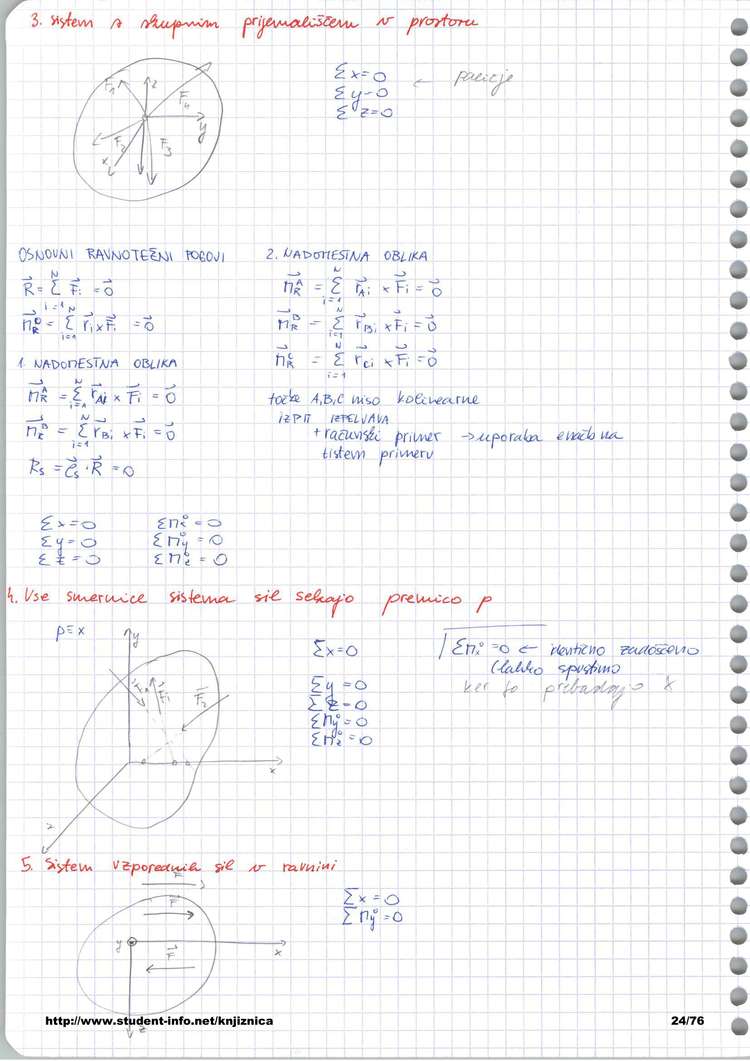 3. sistem s skupnim prijemališčem v prostoru
F₁ z F₄
y
F₂ F₃
x
Σx=0
Σy=0
Σz=0
←
OSNOVNI RAVNOTEŽNI POGOJI
R⃗ = Σ F⃗i = 0⃗
i=1 N
M⃗ᴼR = Σ r⃗i × F⃗i = 0⃗
i=1
1. NADOMESTNA OBLIKA
M⃗ᴬR = Σ r⃗Ai × F⃗i = 0⃗
M⃗ᴮR = Σ r⃗Bi × F⃗i = 0⃗
i=1
Rs = e⃗s · R⃗ = 0
2. NADOMESTNA OBLIKA
N
M⃗ᴬR = Σ r⃗Ai × F⃗i = 0⃗
i=1
M⃗ᴮR = Σ r⃗Bi × F⃗i = 0⃗
i=1
N
M⃗ᶜR = Σ r⃗Ci × F⃗i = 0⃗
i=1
točke A,B,C niso kolinearne
IZPIT IZPELJAVA
+ računski primer → uporaba enačb na
tistem primeru
Σx=0 ΣMₓ°=0
Σy=0 ΣMy°=0
Σz=0 ΣMz°=0
4. Vse smernice sistema sil sekajo premico p
p≡x
y
F⃗₁ F⃗₂
x
z
Σx=0
Σy=0
Σz=0
ΣMy°=0
ΣMz°=0
ΣMₓ°=0 ← identično zadoščeno
(lahko spustimo
ker jo prebadajo x
5. Sistem vzporednih sil v ravnini
F⃗
F⃗
y x
F⃗
z
Σx=0
ΣMy°=0
http://www.student-info.net/knjiznica 24/76